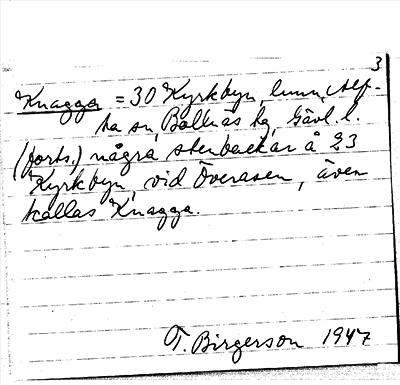 3
Knagga = 30 Kyrkbyn, hmn, Alf-
ta sn, Bollnäs hg, Gävl. l.
(forts.) några stenbackar å 23
Kyrkbyn, vid Överåsen, även
kallas Knagga.
T. Birgerson 1947